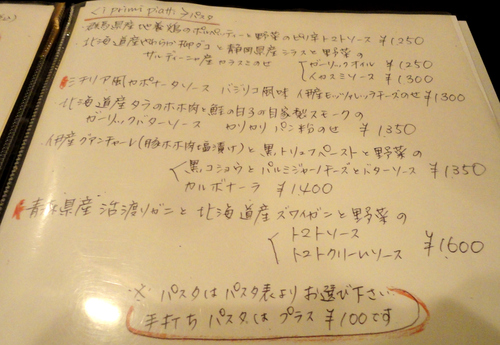 <i primi piatti>パスタ
群馬県産地養鶏のポルペッティーと野菜のピリ辛トマトソース ¥1250
北海道産やわらか柳タコと静岡県産シラスと野菜の
サルディーニャ産カラスミのせ
ガーリックオイル ¥1250
トマトソース ¥1300
シチリア風カポナータソース バジリコ風味 伊産モッツァレッラチーズのせ ¥1300
北海道産タラのホホ肉と鮭の白子の自家製スモークの
ガーリックバターソース カリカリパン粉のせ ¥1350
伊産グアンチャーレ(豚ホホ肉塩漬け)と黒トリュフペーストと野菜の
黒コショウとパルミジャーノチーズとバターソース ¥1350
カルボナーラ ¥1400
青森県産 活渡りガニと北海道産ズワイガニと野菜の
トマトソース
トマトクリームソース ¥1600
※ パスタはパスタ表よりお選び下さい
手打ちパスタはプラス¥100です